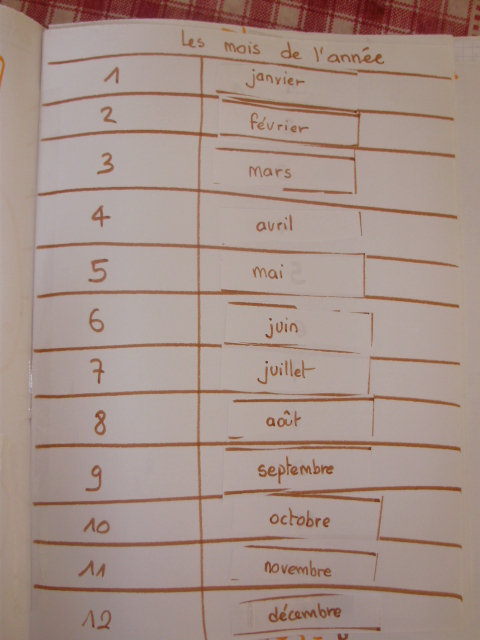 Les mois de l'année
1 janvier
2 février
3 mars
4 avril
5 mai
6 juin
7 juillet
8 août
9 septembre
10 octobre
11 novembre
12 décembre